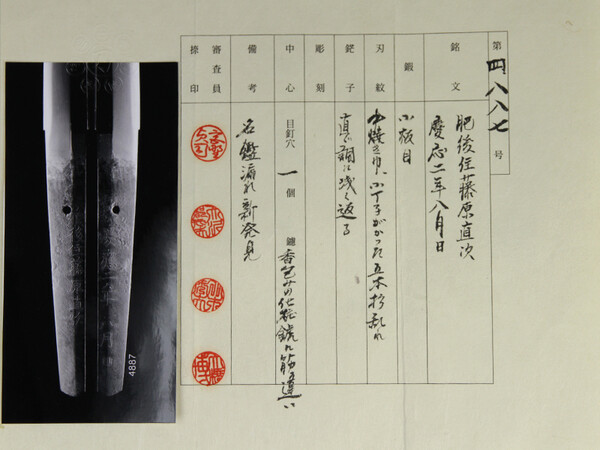 第四八八七号
銘文
肥後住藤原直次
慶応二年八月日
鍛
小板目
刃紋
中焼き巾に小丁子がかった五本杉乱れ
鋩子
直ぐ調に浅く返る
彫刻
中心 目釘穴 一個 鑢 香包みの化粧鑢に筋違い
備考
名鑑漏れ新発見
審査員
捺印
4887